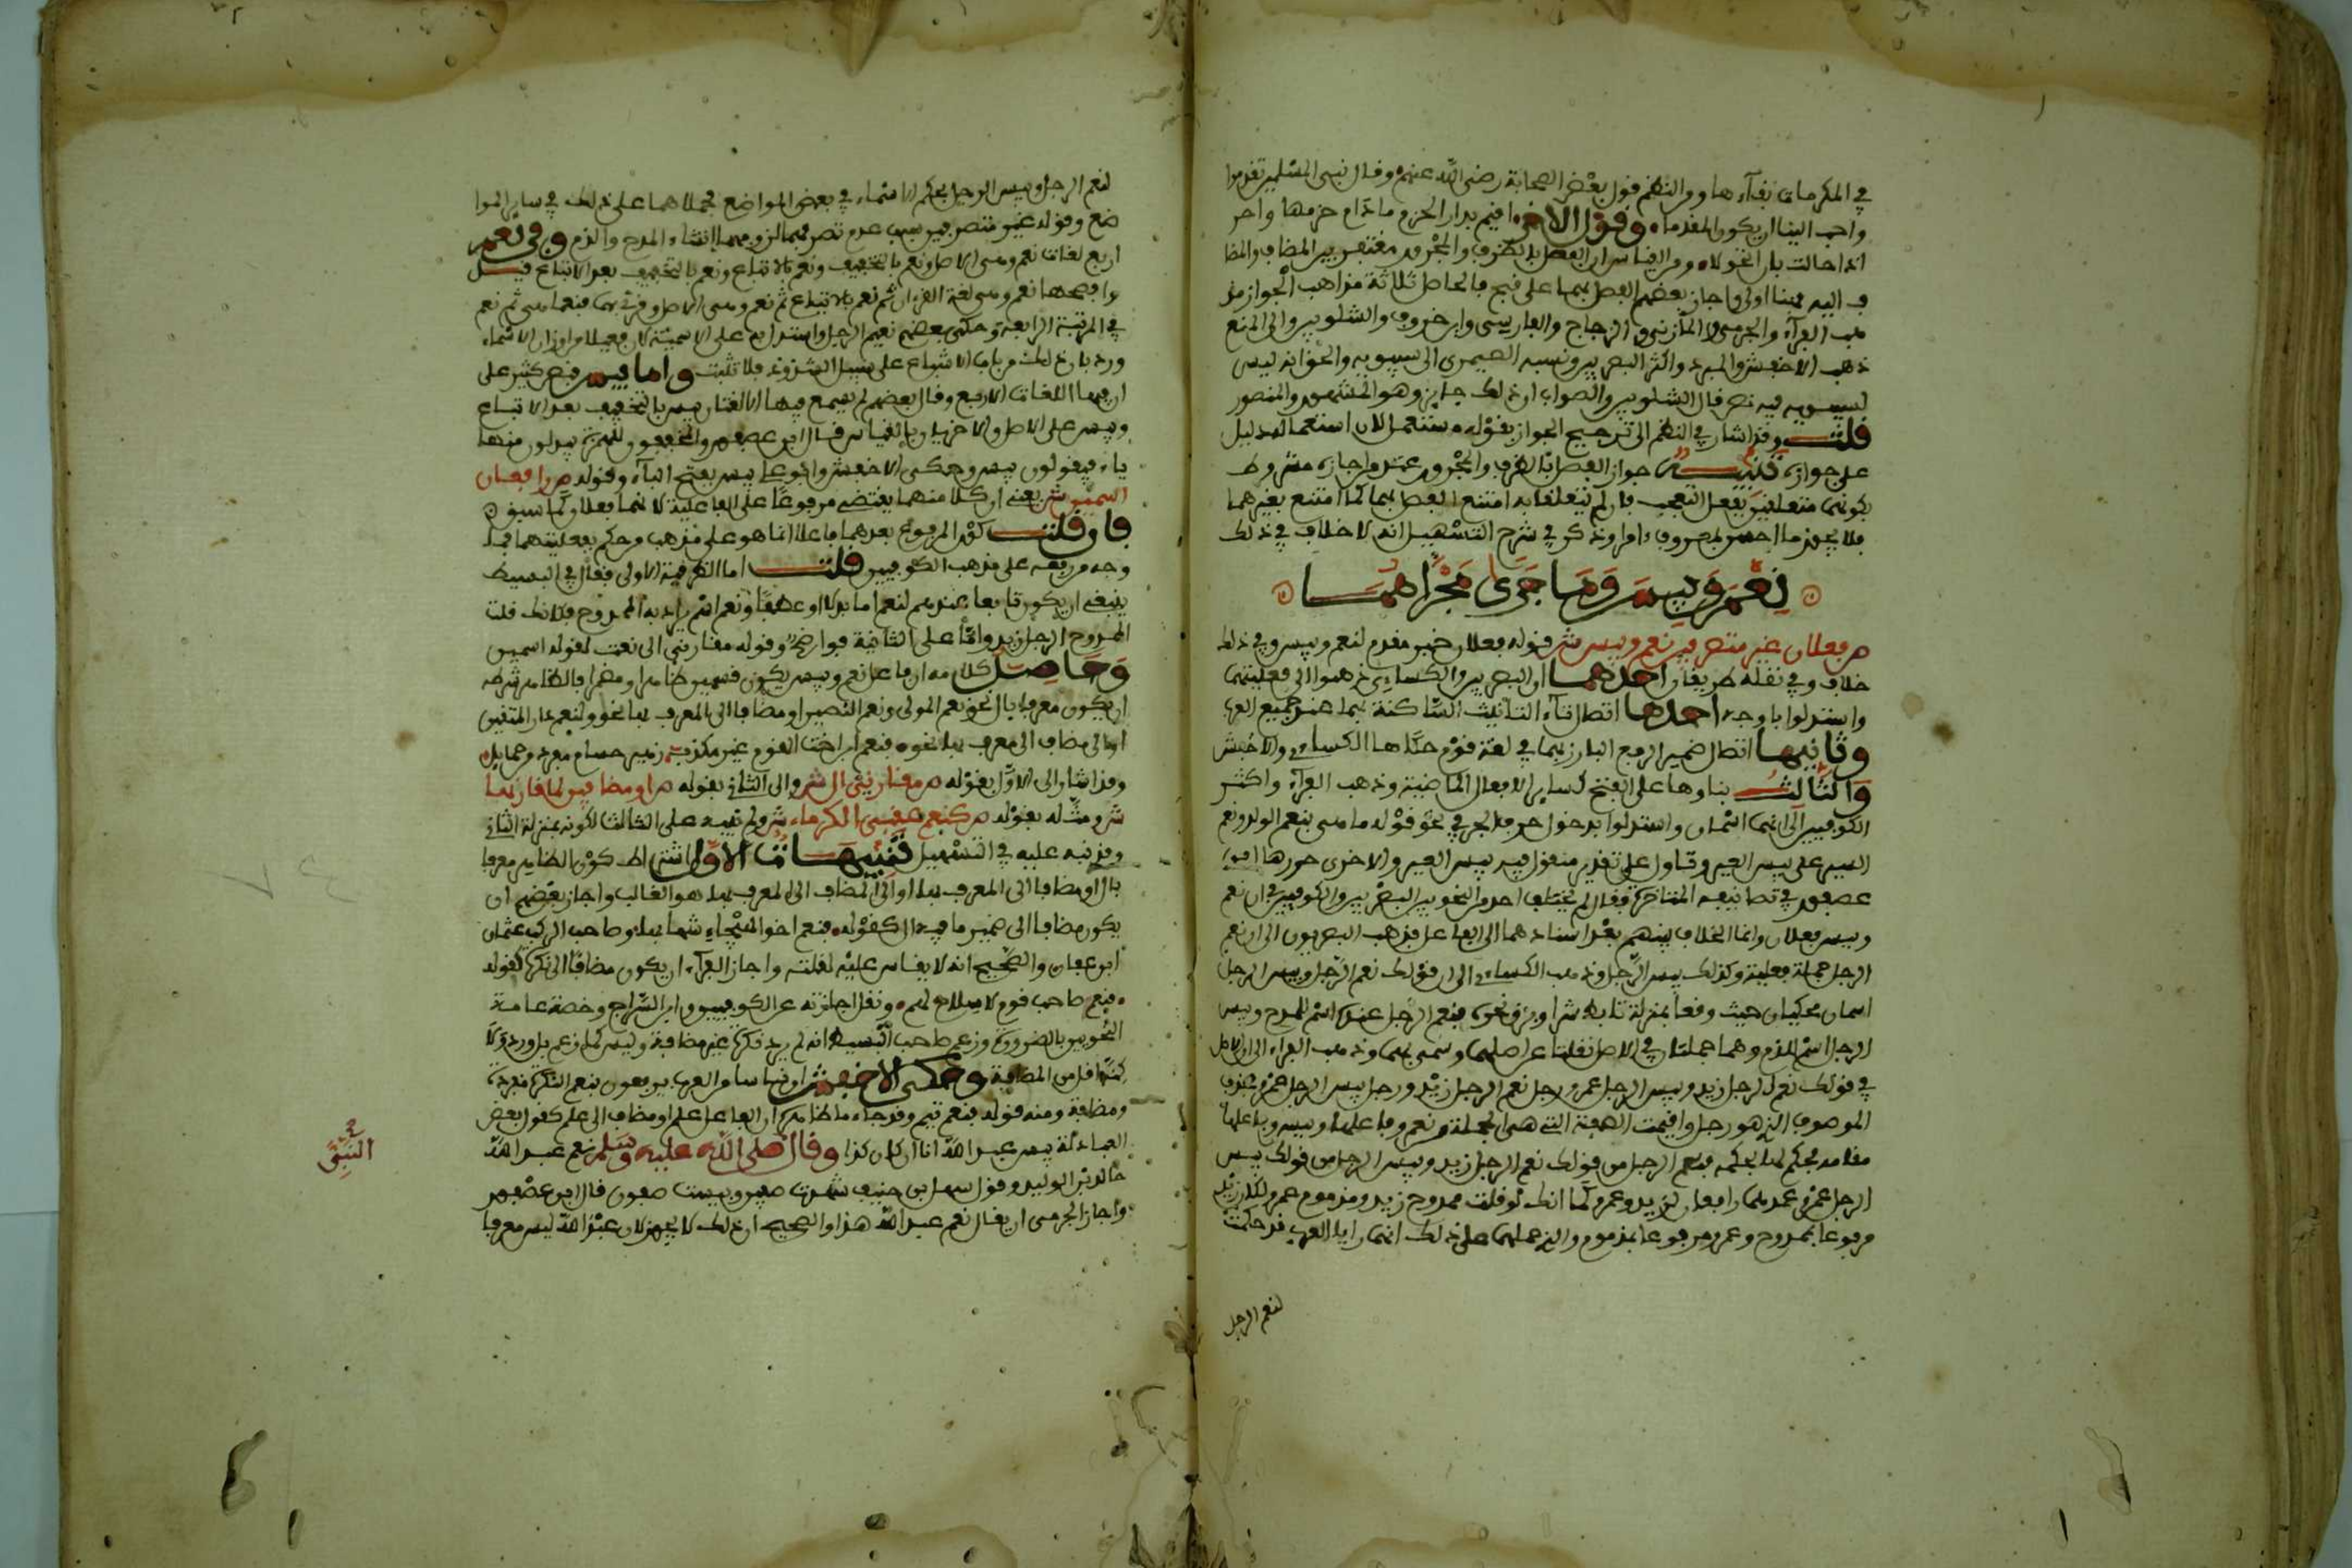 في المكرمات بقآءها ومن النظم قول بعض الصحابة رضي الله عنهم وقال نبي المسلمين تقدموا
واحبب الينا ان يكون المقدما وقول الاخر اقيم بدار الحزم ما دام حزمها واحر
اذا حالت بان اتحولا ومن القياس ان الفصل بالظرف والمجرور مغتفر بين المضاف والمضا
ف اليه فهنا اولى واجاز بعضهم الفصل بهما على قبح فالحاصل ثلاثة مذاهب الجواز مذ
هب الفرآء والجرمي والمازني والزجاج والفارسي وابن خروف والشلوبين والى المنع
ذهب الاخفش والمبرد واكثر البصريين ونسبه الصيمري الى سيبويه والحق انه ليس
لسيبويه فيه نص قال الشلوبين والصواب ان ذلك جايز وهو المشهور والمنصور
قلت وقد اشار في النظم الى ترجيح الجواز بقوله مستعمل لان استعماله دليل
على جوازه تنبيه جواز الفصل بالظرف والمجرور عند من اجازه مشروط
بكونهما متعلقين بفعل التعجب فان لم يتعلقا به امتنع الفصل بهما كما امتنع بغيرهما
فلا يجوز ما احسن بمعروف امرا وذكر في شرح التسهيل انه لا خلاف في ذلك
نعم وبيس وما جرى مجراهما
ص فعلان غير متصرفين نعم وبيس ش قوله فعلان خبر مقدم لنعم وبيس وفي ذلك
خلاف وفي نقله طريقان احدهما ان البصريين والكساءي ذهبوا الى فعليتهما
واستدلوا باوجه احدها اتصال تآء التانيث الساكنة بهما عند جميع العرب
وثانيها اتصال ضمير الرفع البارز بهما في لغة قوم حكاها الكساءي والاخفش
والثالث بناوها على الفتح كساير الافعال الماضية وذهب الفرآء واكثر
الكوفيين الى انهما اسمان واستدلوا بدخول حرف الجر في نحو قوله ما هي بنعم الولد ونعم
السير على بيس العير وتاول على تقدير مقول فيه بيس العير والاخرى حررها ابن
عصفور في تصانيفه المتاخرة فقال لم يختلف احد من النحويين البصريين والكوفيين في ان نعم
وبيس فعلان وانما الخلاف بينهم بعد اسنادهما الى الفاعل فذهب البصريون الى ان نعم
الرجل جملة فعلية وكذلك بيس الرجل وذهب الكساءي الى ان قولك نعم الرجل وبيس الرجل
اسمان محكيان حيث وقعا بمنزلة تابط شرا وبرق نحره فنعم الرجل عنده اسم للممدوح وبيس
الرجل اسم للمذموم وهما جملتان في الاصل نقلتا عن اصلهما وسمي بهما وذهب الفراء الى ان الاصل
في قولك نعم الرجل زيد وبيس الرجل عمرو رجل نعم الرجل زيد ورجل بيس الرجل عمرو فحذف
الموصوف الذي هو رجل واقيمت الصفة التي هي الجملة من نعم وفاعلها وبيس وفاعلها
مقامه فحكم لها بحكمه فنعم الرجل من قولك نعم الرجل زيد وبيس الرجل من قولك بيس
الرجل عمرو عندهما رافعان لزيد وعمرو كما انك لو قلت ممدوح زيد ومذموم عمرو لكان زيد
مرفوعا بممدوح وعمرو مرفوعا بمذموم والذي حملهما على ذلك انهما رايا العرب قد حكمت
لنعم الرجل
لنعم الرجل وبيس الرجل بحكم الاسماء في بعض المواضع فحملاهما على ذلك في ساير الموا
ضع وقوله غير متصرفين سبب عدم تصرفهما لزومهما انشاء المدح والذم وفي نعم
اربع لغات نعم وهي الاصل ونعم بالتخفيف ونعم بالاتباع ونعم بالتخفيف بعد الاتباع قيل
وافصحها نعم وهي لغة القرءان ثم نعم بالاتباع ثم نعم وهي الاصل وقرئ بها فنعما هي ثم نعم
في المرتبة الرابعة وحكى بعضهم نعيم الرجل واستدل به على الاسمية لان فعيلا من اوزان الاسماء
ورد بان ذلك من باب الاشباع على سبيل الشذوذ فلا تثبت واما بيس فنص كثير على
ان فيها اللغات الاربع وقال بعضهم لم يسمع فيها الا لغتان بيس بالتخفيف بعد الاتباع
وبيس على الاصل والاخريان بالقياس قال ابن عصفور والمخففون للهمزة يبدلون منها
ياء فيقولون بيس وحكى الاخفش وابو علي بيس بفتح البآء وقوله ص رافعان
اسمين ش يعني ان كلا منهما يقتضي مرفوعا على الفاعلية لانهما فعلان كما سبق
فان قلت كون المرفوع بعدهما فاعلا انما هو على مذهب من حكم بفعليتهما فما
وجه من رفعه على مذهب الكوفيين قلت اما الطريقة الاولى فقال في البسيط
ينبغي ان يكون تابعا عندهم لنعم اما بدلا او عطفا ونعم اسم يراد به الممدوح فكانك قلت
الممدوح الرجل زيد واما على الثانية فواضح وقوله مقارني ال نعت لقوله اسمين
وحاصل كلامه ان فاعل نعم وبيس يكون قسمين ظاهرا ومضمرا فالظاهر شرطه
ان يكون معرفا بال نحو نعم المولى ونعم النصير او مضافا الى المعرف بها نحو ولنعم دار المتقين
او الى مضاف الى معرف بها نحو فنعم ابن اخت القوم غير مكذب زهير حسام مفرد من حمايل
وقد اشار الى الاول بقوله ص مقارني ال ش والى الثاني بقوله ص او مضافين لما قارنها
ش ومثله بقوله ص كنعم عقبى الكرماء ش ولم ينبه على الثالث لكونه بمنزلة الثاني
وقد نبه عليه في التسهيل تنبيهات الاول اشتراط كون الظاهر معرفا
بال او مضافا الى المعرف بها او الى المضاف الى المعرف بها هو الغالب واجاز بعضهم ان
يكون مضافا الى ضمير ما فيه ال كقوله فنعم اخو الهيجاء شهابها وصاحب الركب عثمان
ابن عفان والصحيح انه لا يقاس عليه لقلته واجاز الفرآء ان يكون مضافا الى نكرة كقوله
فنعم صاحب قوم لا سلاح لهم ونقل اجازته عن الكوفيين وابن السراج وخصه عامة
النحويين بالضرورة وزعم صاحب البسيط انه لم يرد نكرة غير مضافة وليس كما زعم بل ورد لا
كنه اقل من المضافة وحكى الاخفش ان ناسا من العرب يرفعون بنعم النكرة مفردة
ومضافة ومنه قوله فنعم تيم وقد جاء ما ظاهره ان الفاعل علم او مضاف الى علم كقول بعض
العبادلة بيس عبد الله انا ان كان كذا وقال صلى الله عليه وسلم نعم عبد الله
خالد بن الوليد وقول سهل بن حنيف شهدت صفين وبيست صفون قال ابن عصفور
واجاز الجرمي ان يقال نعم عبد الله هذا والصحيح ان ذلك لا يجوز لان عبد الله ليس معرفا